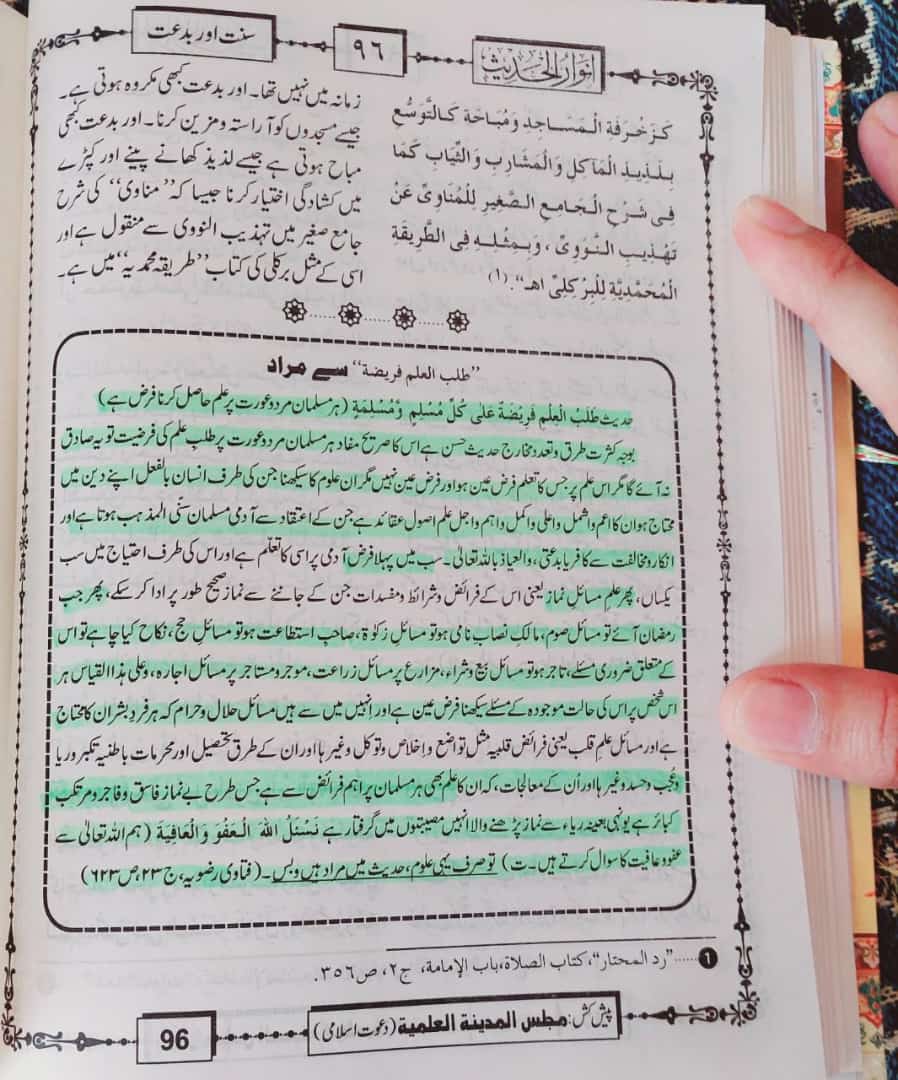 انوار الحدیث
۹٦
سنت اور بدعت
كَزَخْرَفَةِ الْمَسَاجِدِ وَمُبَاحَة كَالتَّوَسُّعِ
بِلَذِيذِ الْمَآكِلِ وَالْمَشَارِبِ وَالثِّيَابِ كَمَا
فِى شَرْحِ الْجَامِعِ الصَّغِيرِ لِلْمُنَاوِىِّ عَنْ
تَهْذِيبِ النَّوَوِىِّ ، وَبِمِثْلِهِ فِى الطَّرِيقَةِ
الْمُحَمَّدِيَّةِ لِلْبِرْكِلِىِّ اهـ“. (۱)
زمانہ میں نہیں تھا۔ اور بدعت کبھی مکروہ ہوتی ہے۔
جیسے مسجدوں کو آراستہ و مزین کرنا۔ اور بدعت کبھی
مباح ہوتی ہے جیسے لذیذ کھانے پینے اور کپڑے
میں کشادگی اختیار کرنا جیسا کہ ”مناوی“ کی شرح
جامع صغیر میں تہذیب النووی سے منقول ہے اور
اسی کے مثل برکلی کی کتاب ”طریقہ محمدیہ“ میں ہے۔
”طلب العلم فریضة“ سے مراد
حدیث طَلَبُ الْعِلْمِ فَرِیْضَةٌ عَلٰی کُلِّ مُسْلِمٍ وَّمُسْلِمَةٍ (ہر مسلمان مرد و عورت پر علم حاصل کرنا فرض ہے)
بوجہ کثرتِ طرق و تعدد مخارج حدیث حسن ہے اس کا صریح مفاد ہر مسلمان مرد و عورت پر طلبِ علم کی فرضیت تو یہ صادق
نہ آئے گا مگر اس علم پر جس کا تعلم فرض عین ہو اور فرض عین نہیں مگر ان علوم کا سیکھنا جن کی طرف انسان بالفعل اپنے دین میں
محتاج ہو ان کا اعم و اشمل و اعلٰی و اکمل و اہم و اجل علم اصولِ عقائد ہے جن کے اعتقاد سے آدمی مسلمان سنّی المذہب ہوتا ہے اور
انکار و مخالفت سے کافر یا بدعتی، والعیاذ باللہ تعالٰی۔ سب میں پہلا فرض آدمی پر اسی کا تعلّم ہے اور اس کی طرف احتیاج میں سب
یکساں، پھر علمِ مسائلِ نماز یعنی اس کے فرائض و شرائط و مفسدات جن کے جاننے سے نماز صحیح طور پر ادا کر سکے، پھر جب
رمضان آئے تو مسائل صوم، مالکِ نصاب نامی ہو تو مسائلِ زکوٰۃ، صاحبِ استطاعت ہو تو مسائلِ حج، نکاح کیا چاہے تو اس
کے متعلق ضروری مسئلے، تاجر ہو تو مسائل بیع و شراء، مزارع پر مسائل زراعت، موجر و مستاجر پر مسائل اجارہ، وعلٰی ہذا القیاس ہر
اس شخص پر اس کی حالت موجودہ کے مسئلے سیکھنا فرض عین ہے اور انہیں میں سے ہیں مسائل حلال و حرام کہ ہر فردِ بشر ان کا محتاج
ہے اور مسائل علمِ قلب یعنی فرائض قلبیہ مثل تواضع و اِخلاص و توکل وغیرہا اور ان کے طرق تحصیل اور محرمات باطنیہ تکبر و ریا
و عُجب و حسد وغیرہا اور اُن کے معالجات، کہ ان کا علم بھی ہر مسلمان پر اہم فرائض سے ہے جس طرح بے نماز فاسق و فاجر و مرتکب
کبائر ہے یونہی بعینہٖ ریاء سے نماز پڑھنے والا انہیں مصیبتوں میں گرفتار ہے نَسْئَلُ اللّٰہَ الْعَفْوَ وَالْعَافِیَةَ (ہم اللہ تعالٰی سے
عفو و عافیت کا سوال کرتے ہیں۔ت) تو صرف یہی علوم، حدیث میں مراد ہیں و بس۔ (فتاوی رضویہ، ج ۲۳، ص ۶۲۳)
❶ ......”رد المحتار“، کتاب الصلاة، باب الإمامة، ج۲، ص۳۵٦.
پیش کش: مجلس المدینة العلمیة (دعوت اسلامی)
96